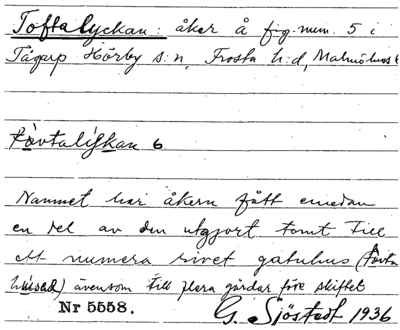 Toftalyckan: åker å fig. num. 5 i
Tågarp Hörby s:n, Frosta h:d, Malmöhus
6
Namnet har åkern fått emedan
en del av den utgjort tomt till
ett numera rivet gatuhus (tåvta
huised) ävensom till flera gårdar före skiftet
Nr 5558.
G. Sjöstedt 1936